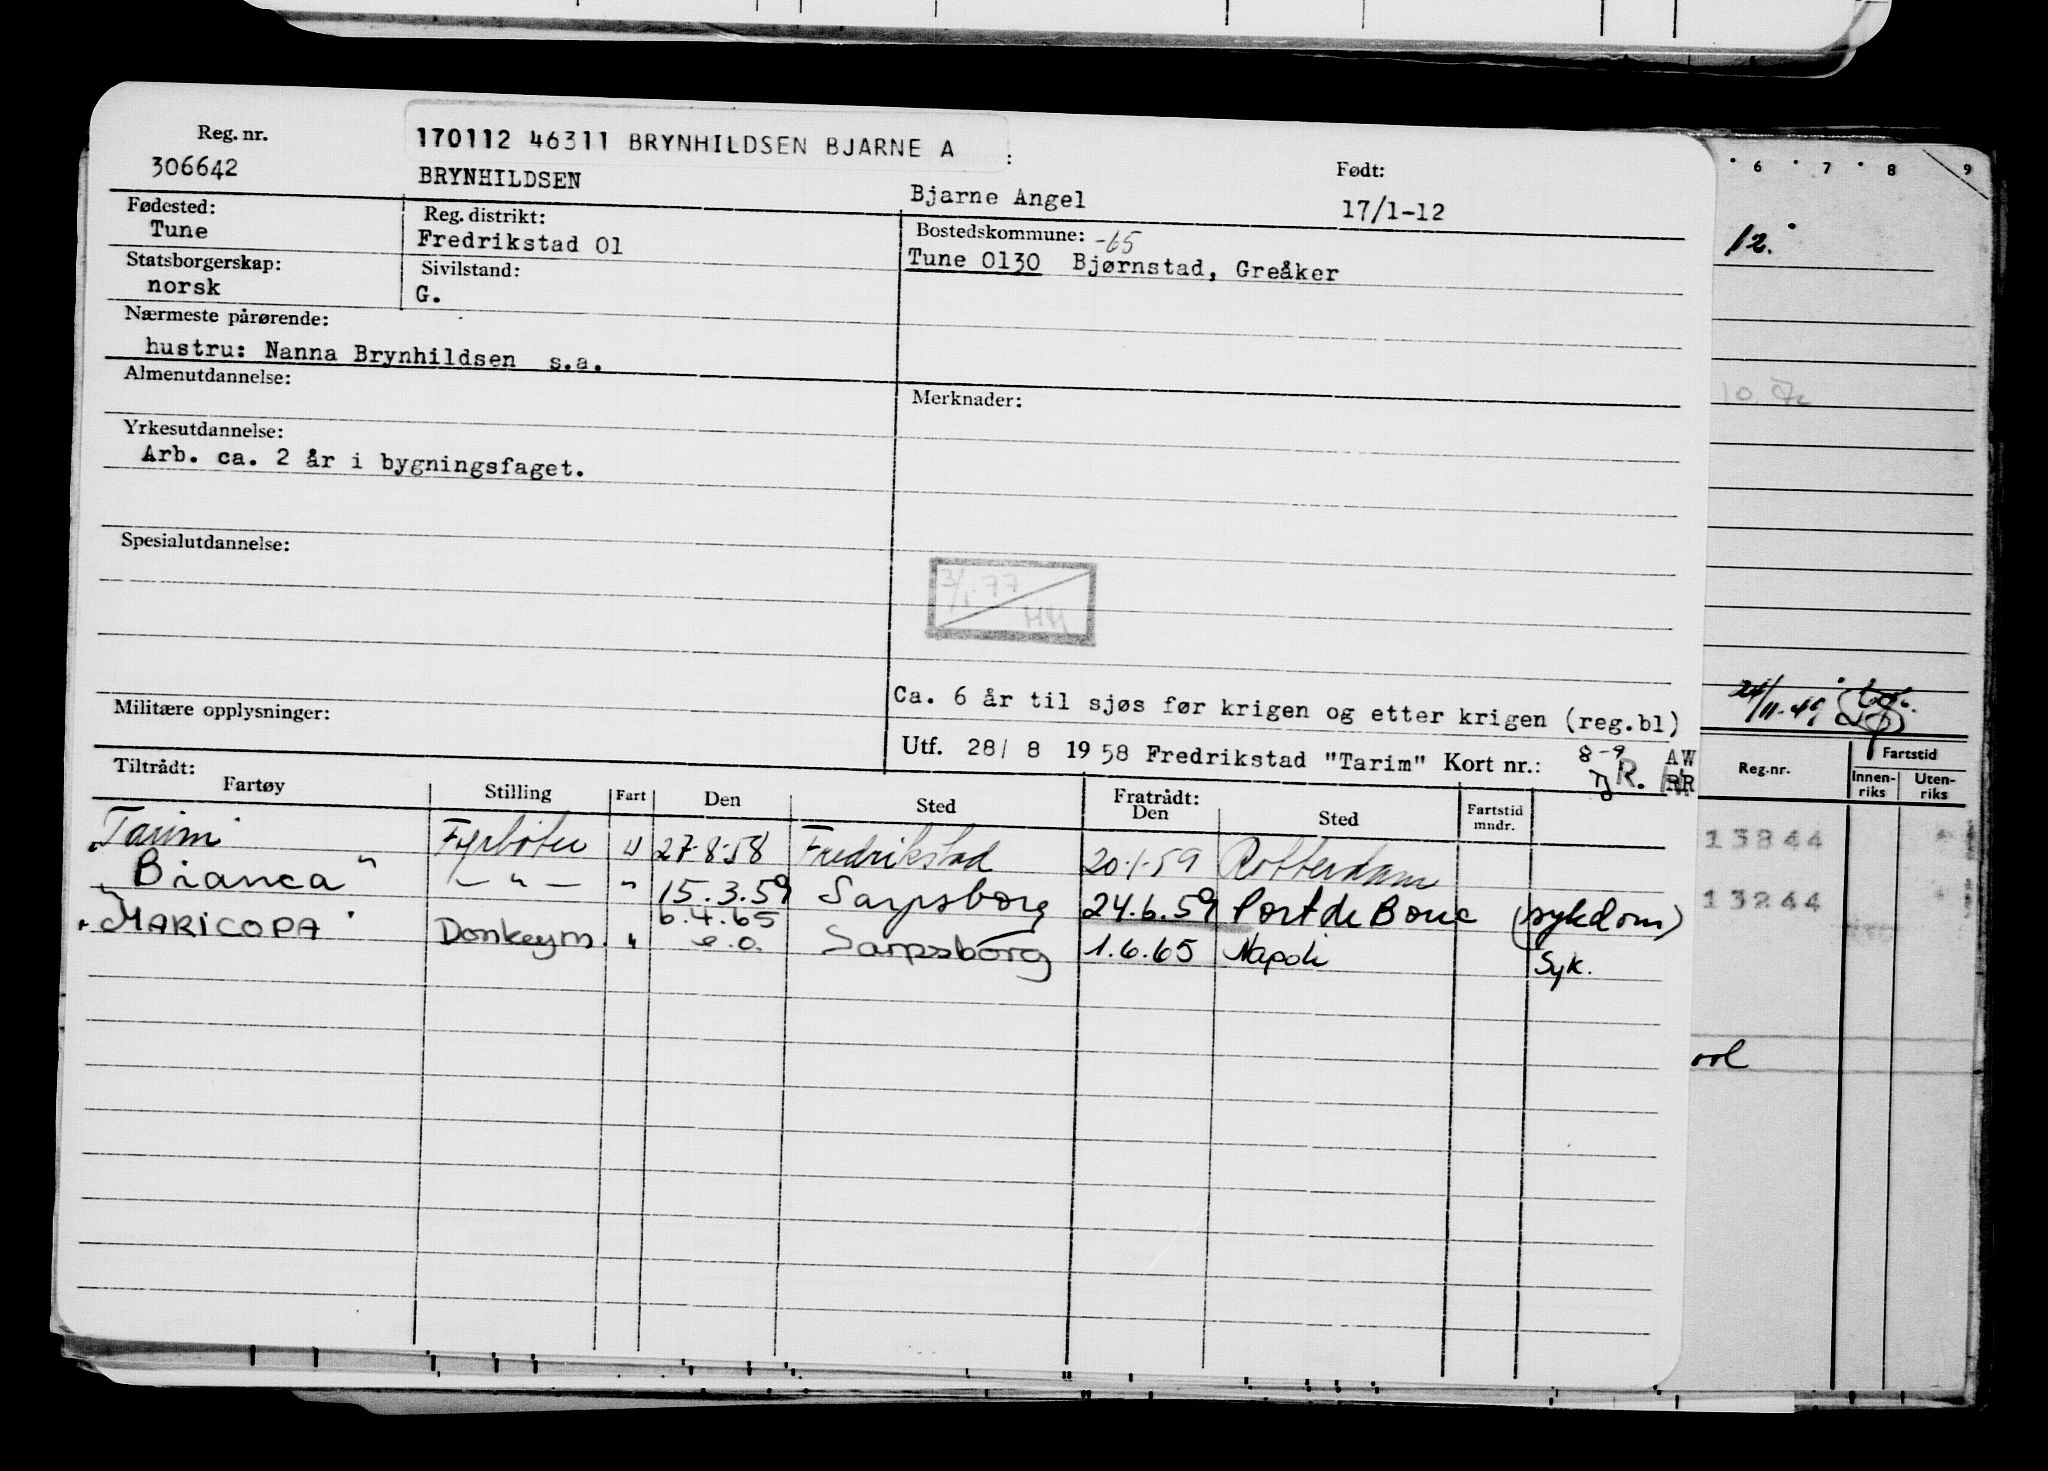 Reg. nr.
306642
170112 46311 BRYNHILDSEN BJARNE A :
BRYNHILDSEN
Bjarne Angel
Født:
17/1-12
Fødested:
Tune
Reg. distrikt:
Fredrikstad 01
Bostedskommune: -65
Tune 0130 Bjørnstad, Greåker
Statsborgerskap:
norsk
Sivilstand:
G.
Nærmeste pårørende:
hustru: Nanna Brynhildsen s.a.
Almenutdannelse:
Merknader:
Yrkesutdannelse:
Arb. ca. 2 år i bygningsfaget.
Spesialutdannelse:
77
HH
Ca. 6 år til sjøs før krigen og etter krigen (reg.bl)
Militære opplysninger:
Utf. 28/ 8 1958 Fredrikstad "Tarim" Kort nr.: 8-9 AW
R. RR
Tiltrådt:
Fartøy Stilling Fart Den Sted Fratrådt: Den Sted Fartstid mndr.
Tarim Fyrbøter U 27-8-58 Fredrikstad 20-1-59 Rotterdam
"Bianca" — " — " 15.3.59 Sarpsborg 24.6.59 Port de Bouc (sykdom)
"MARICOPA" Donkeym. " 6.4.65 e.o. Sarpsborg 1.6.65 Napoli Syk.
6 7 8 9
12.
24/11-49
Reg.nr. Fartstid
Innen-riks Uten-riks
13844
13244
ool